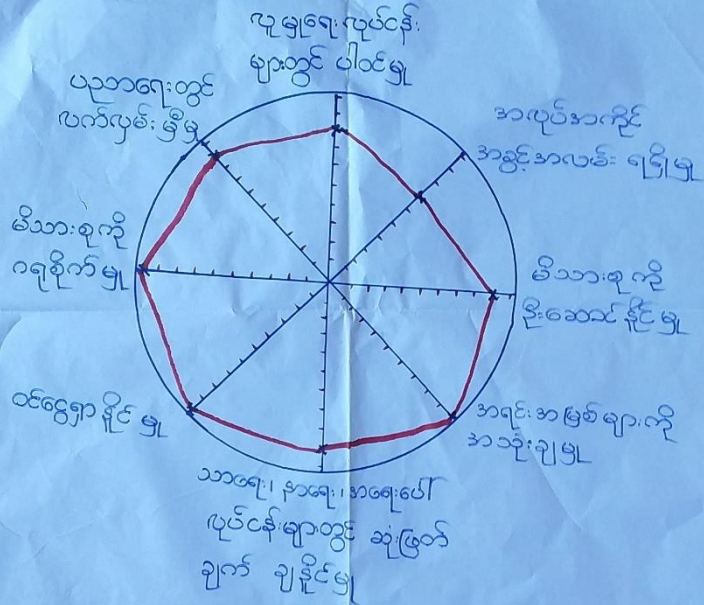 လူမှုရေးလုပ်ငန်း
များတွင် ပါဝင်မှု
အလုပ်အကိုင်
အခွင့်အလမ်း ရရှိမှု
မိသားစုကို
ဦးဆောင်နိုင်မှု
အရင်းအမြစ်များကို
အသုံးချမှု
သာရေး၊ နာရေး၊ အရေးပေါ်
လုပ်ငန်းများတွင် ဆုံးဖြတ်
ချက် ချနိုင်မှု
ဝင်ငွေရှာနိုင်မှု
မိသားစုကို
ဂရုစိုက်မှု
ပညာရေးတွင်
လက်လှမ်းမှီမှု